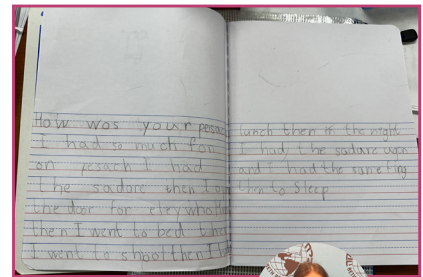 How wos your pesach
I had so much fun
on pesach I had
the sadare then I o
the door for eleywho
then I went to bed the
I went to shool then I
lunch then in the night
I had the sadare
and i had the same fing
then to sleep